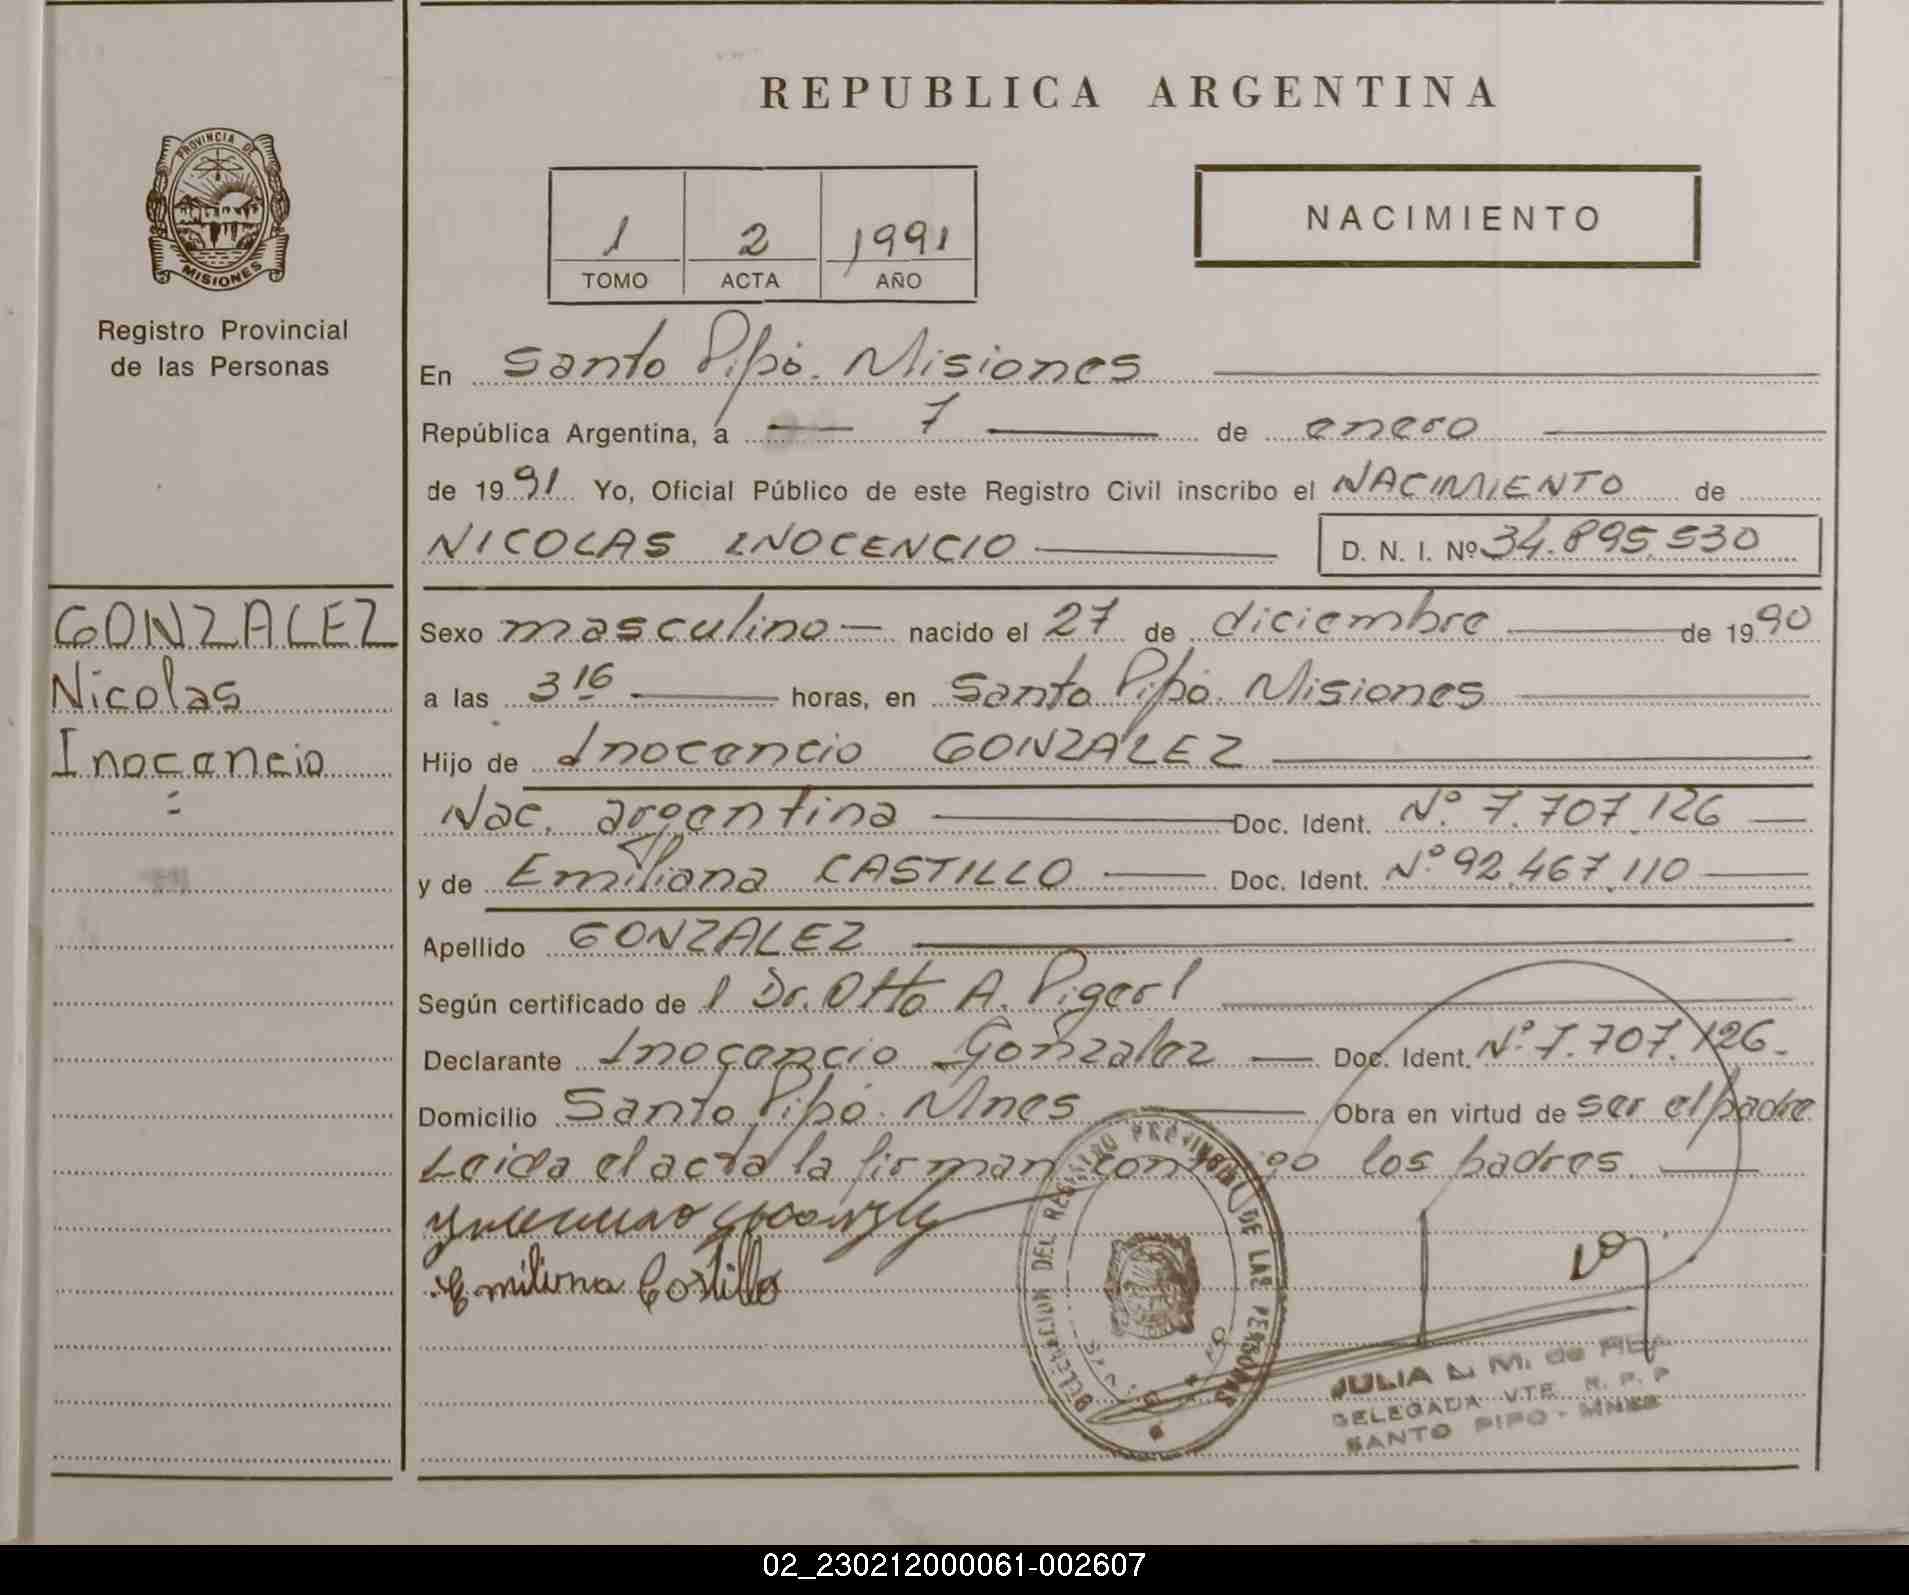 REPUBLICA ARGENTINA
PROVINCIA DE
MISIONES
Registro Provincial
de las Personas
1 2 1991
TOMO ACTA AÑO
NACIMIENTO
En Santo Pipó. Misiones
República Argentina, a 7 de enero
de 1991 Yo, Oficial Público de este Registro Civil inscribo el NACIMIENTO de
NICOLAS INOCENCIO D. N. I. Nº 34.895.530
GONZALEZ
Nicolas
Inocencio
Sexo masculino nacido el 27 de diciembre de 1990
a las 3 16 horas, en Santo Pipó. Misiones
Hijo de Inocencio GONZALEZ
Nac. argentina Doc. Ident. Nº 7.707.126
y de Emiliana CASTILLO Doc. Ident. Nº 92.467.110
Apellido GONZALEZ
Según certificado de l Dr. Otto A. Pigerl
Declarante Inocencio Gonzalez Doc. Ident. Nº 7.707.126
Domicilio Santo Pipó. Mnes Obra en virtud de ser el padre
Leida el acta la firman conmigo los padres
Emiliana Castillo
DELEGACION DEL REGISTRO PROVINCIAL DE LAS PERSONAS
JULIA M. de
DELEGADA VTE. R. P. P
SANTO PIPO - MNES
02_230212000061-002607